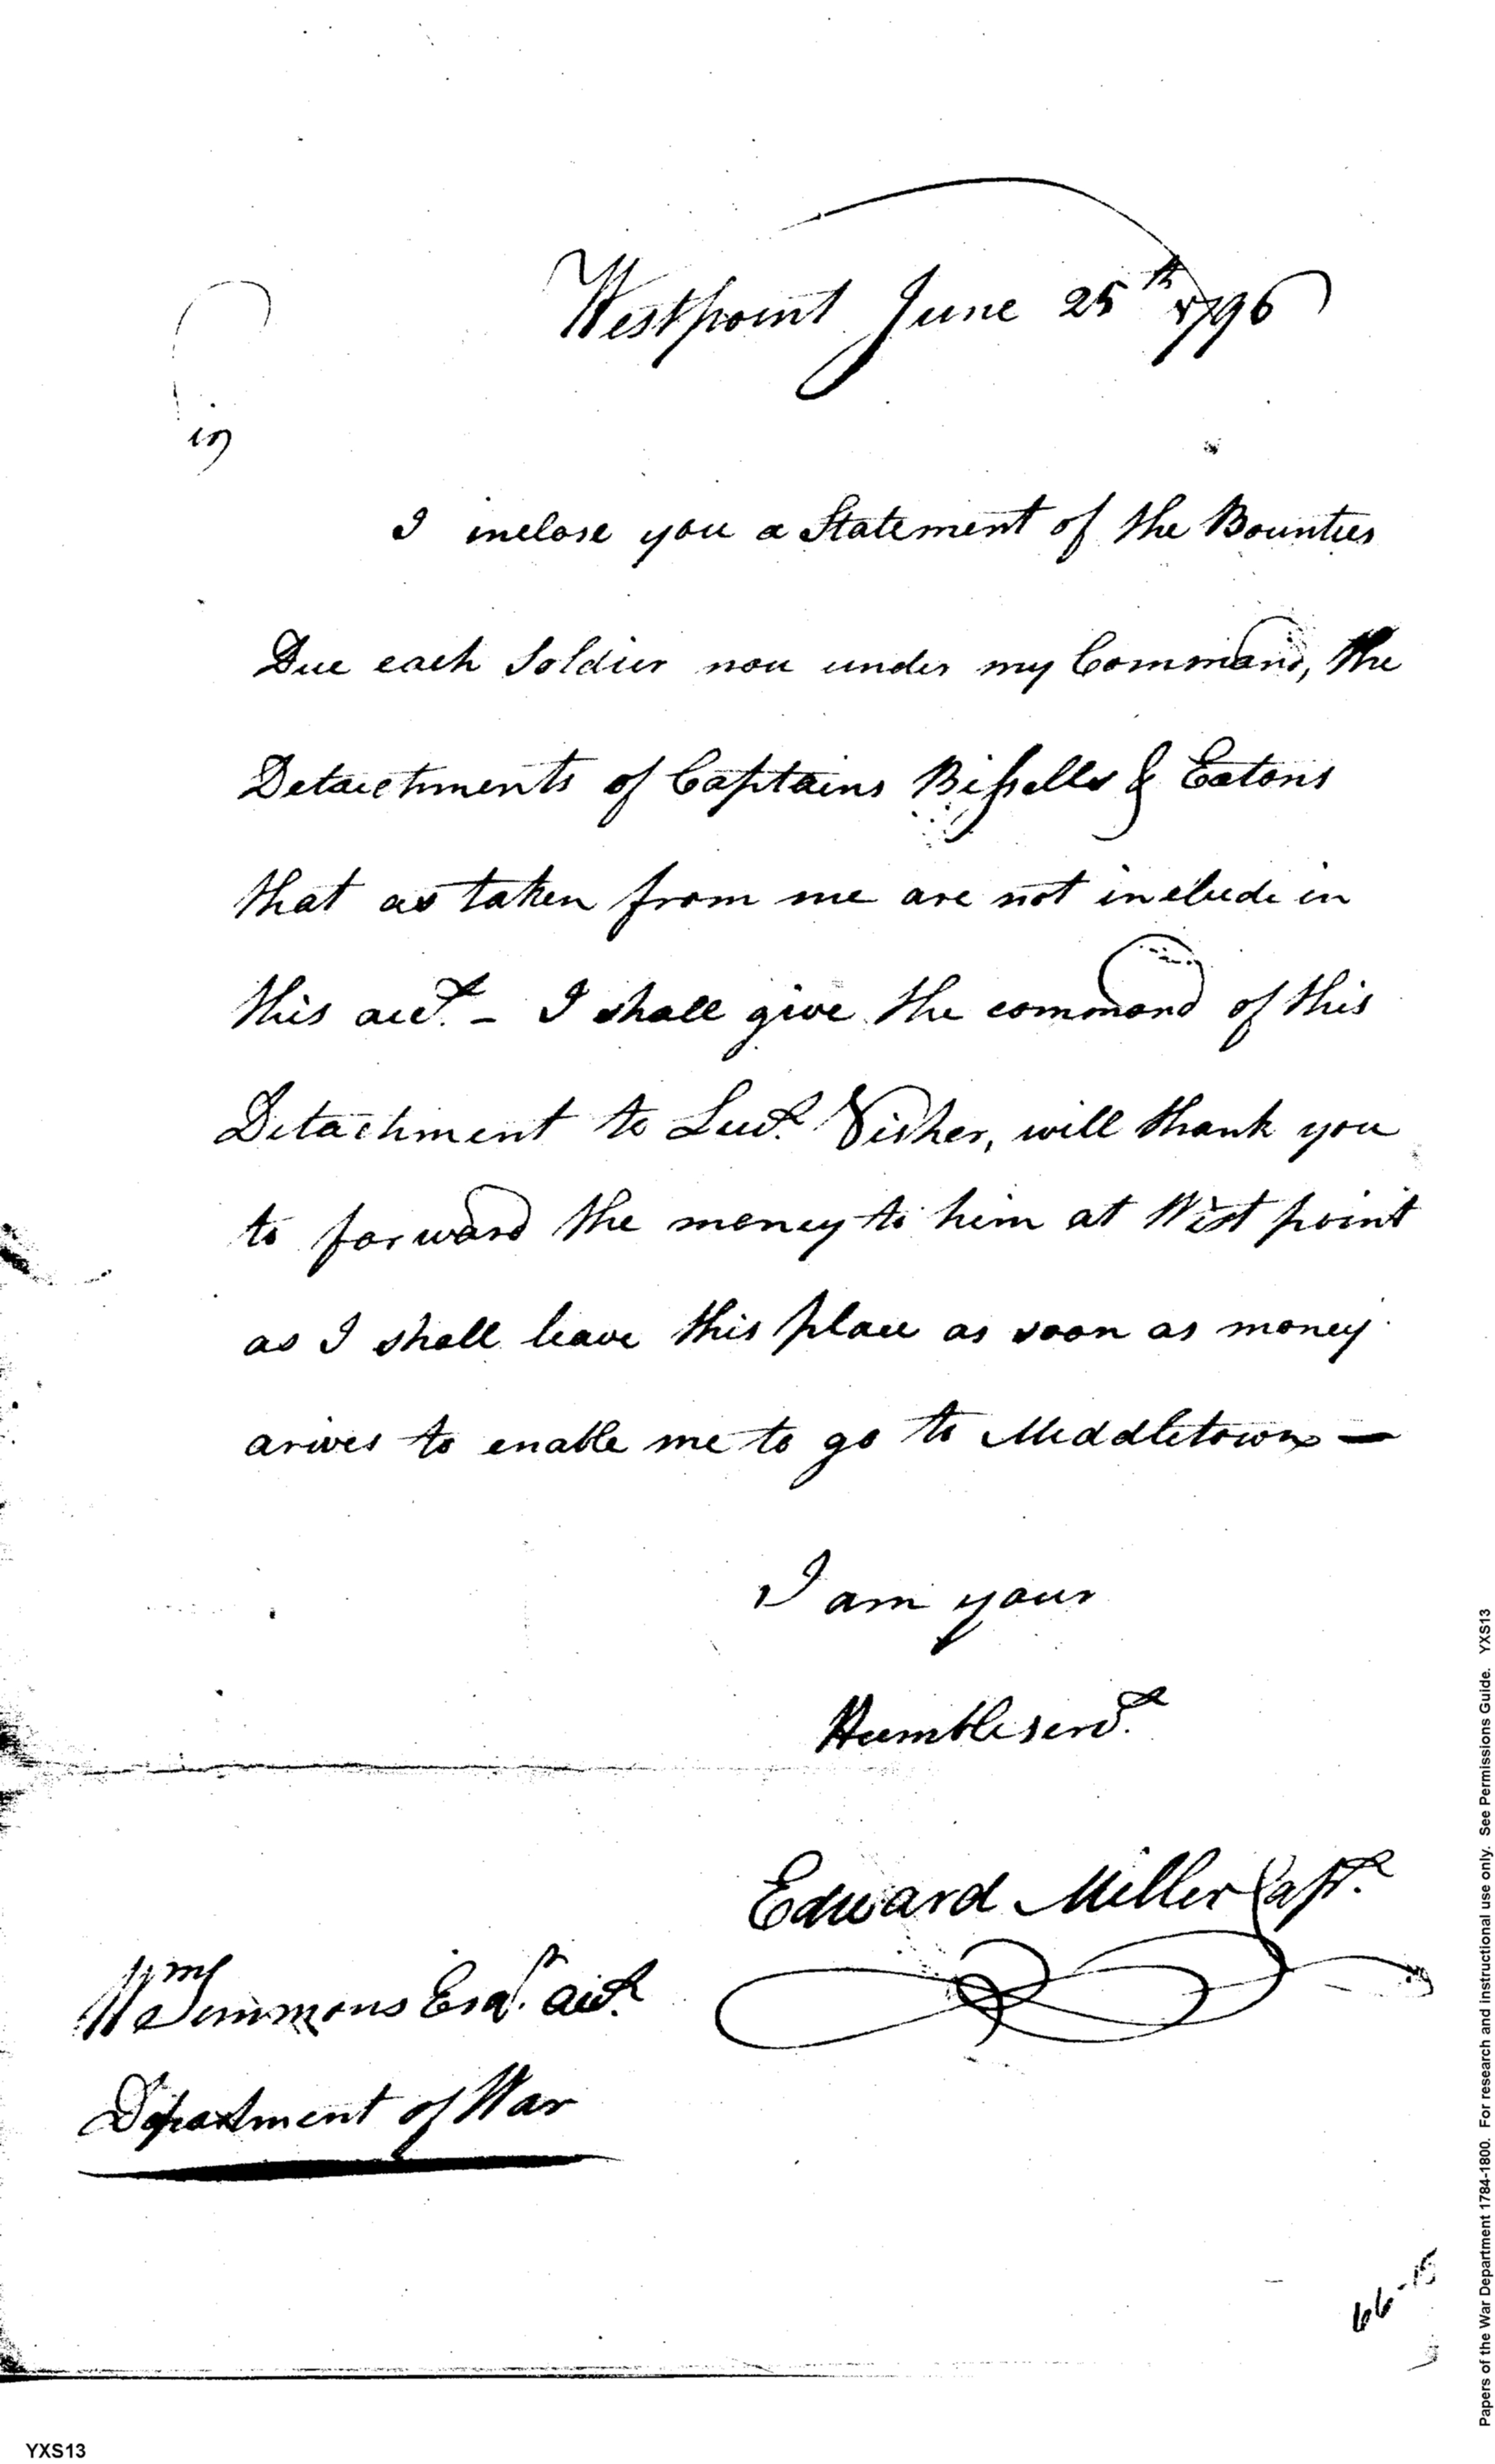 Westpoint June 25th 1796
I inclose you a Statement of the Bounties
Due each Soldier nou under my Command, the
Detaichments of Captains Bissells & Eatons
that as taken from me are not include in
this acct. - I shall give the command of this
Detachment to Lieut. Visher, will thank you
to forward the money to him at West point
as I shall leave this place as soon as money
arives to enable me to go to Middletown —
I am your
Humble servt.
Edward Miller Capt.
Wm Simmons Esqr. acct.
Department of War
66-15
YXS13
Papers of the War Department 1784-1800. For research and instructional use only. See Permissions Guide. YXS13